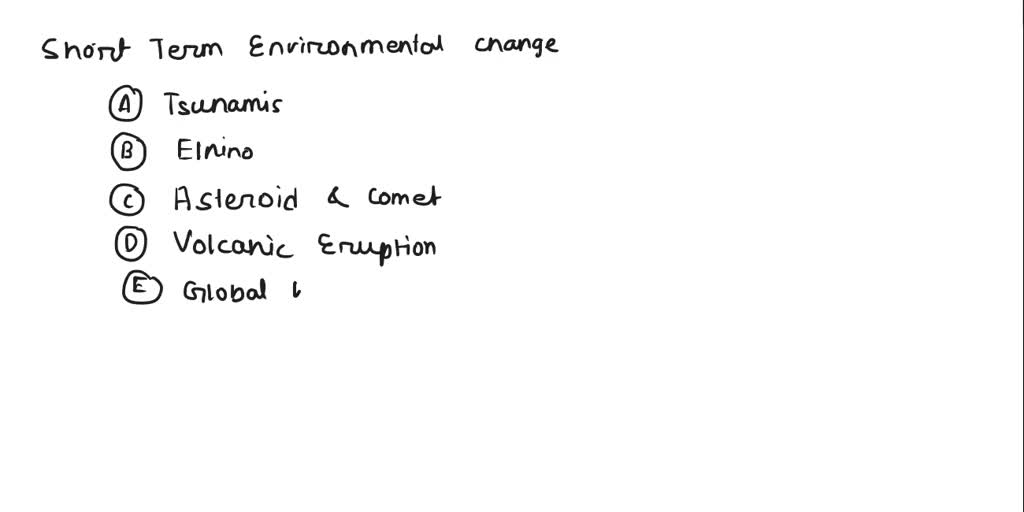 Short Term Environmental change
A Tsunamis
B Elnino
C Asteroid & Comet
D Volcanic Eruption
E Global